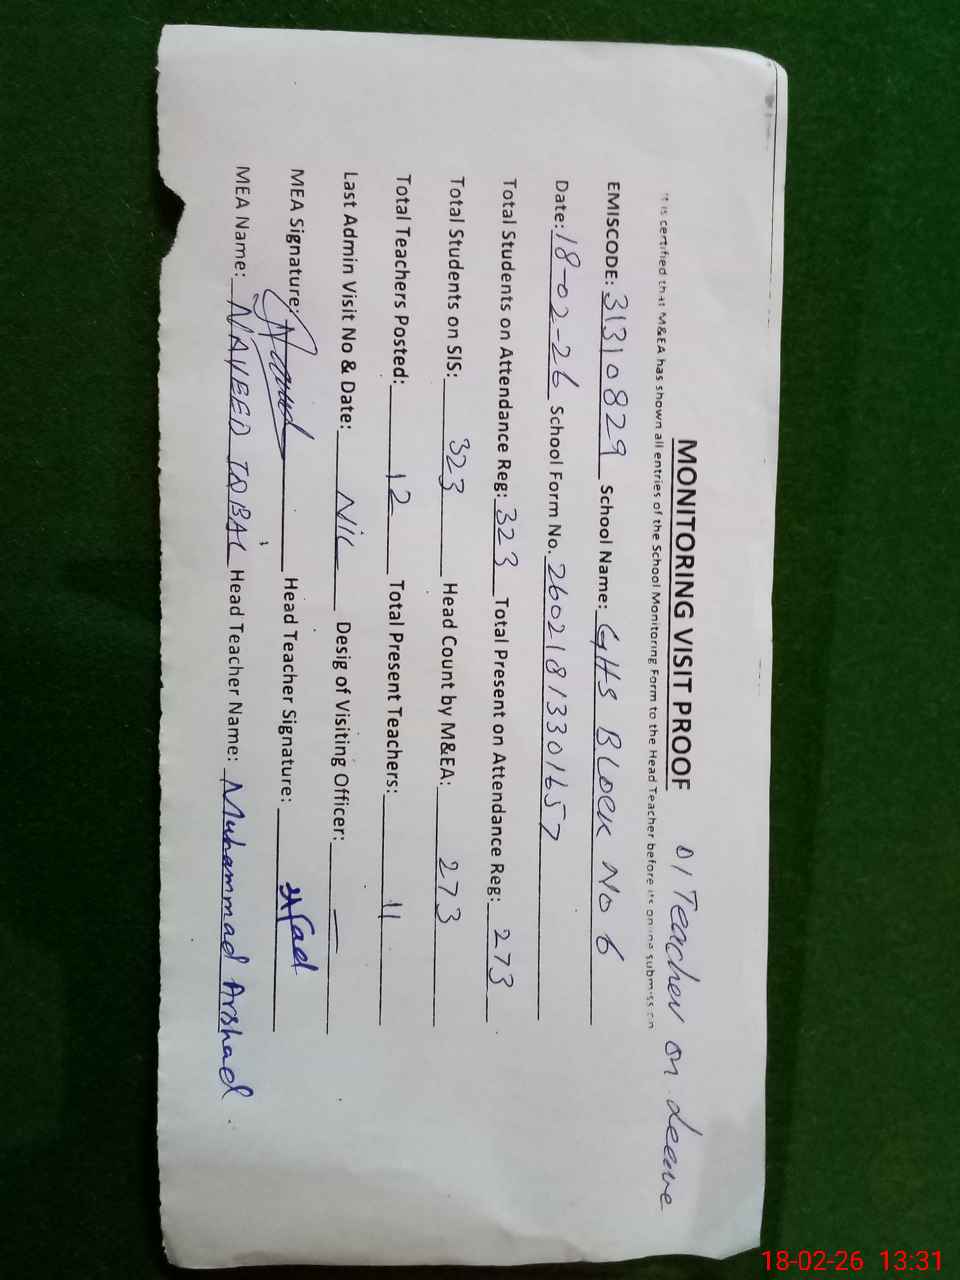 MONITORING VISIT PROOF
01 Teacher on leave
It is certified that M&EA has shown all entries of the School Monitoring Form to the Head Teacher before its online submission
EMISCODE: 31310829 School Name: GHS Block No 6
Date: 18-02-26 School Form No. 26021813301657
Total Students on Attendance Reg: 323 Total Present on Attendance Reg: 273
Total Students on SIS: 323 Head Count by M&EA: 273
Total Teachers Posted: 12 Total Present Teachers: 11
Last Admin Visit No & Date: Nil Desig of Visiting Officer: —
MEA Signature: Head Teacher Signature:
MEA Name: NAVEED IQBAL Head Teacher Name: Muhammad Arshad
18-02-26 13:31